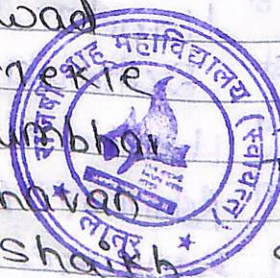 wad
umbhar
havan
Shaikh
राजर्षी शाहू महाविद्यालय (स्वायत्त)
लातूर